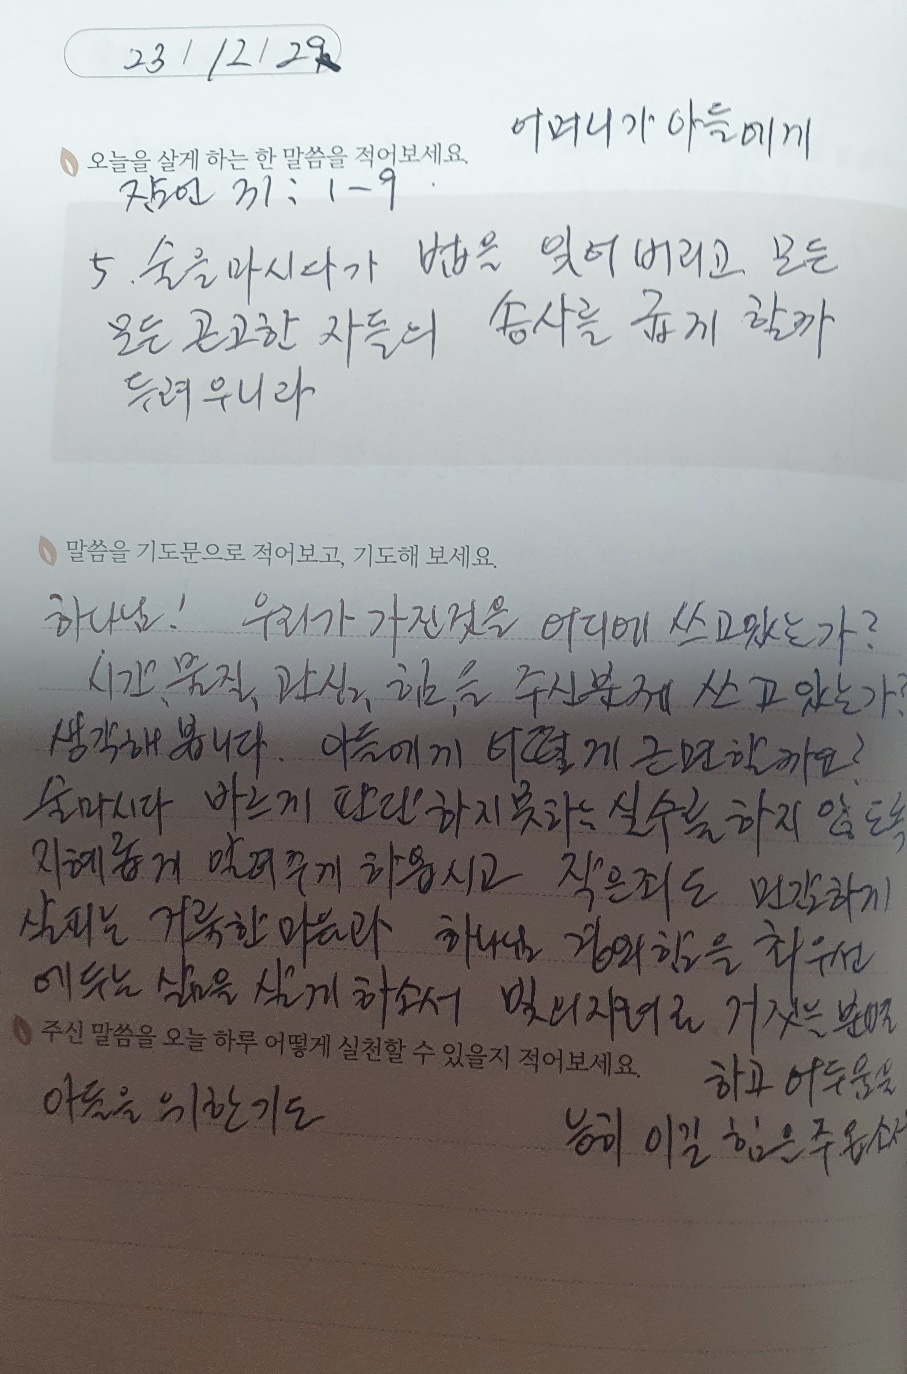 23 / 12 / 29
어머니가 아들에게
오늘을 살게 하는 한 말씀을 적어보세요.
잠언 31 : 1-9
5. 술을마시다가 법을 잊어버리고 모든
모든 곤고한 자들의 송사를 굽게 할까
두려우니라
말씀을 기도문으로 적어보고, 기도해 보세요.
하나님! 우리가 가진것을 어디에 쓰고있는가?
시간, 물질, 관심, 힘,을 주신분께 쓰고있는가?
생각해 봅니다. 아들에게 어떻게 근면할까요?
술마시다 바르게 판단하지못하는 실수를 하지 않도록
지혜롭게 알려주게 하옵시고 작은죄도 민감하게
살피는 거룩한 마음과 하나님 경외함을 최우선
에두는 삶을 살게 하소서 빛의자녀로 거짓을 분별
하고 어두움을
능히 이길 힘은 주옵소서
주신 말씀을 오늘 하루 어떻게 실천할 수 있을지 적어보세요.
아들을 위한기도